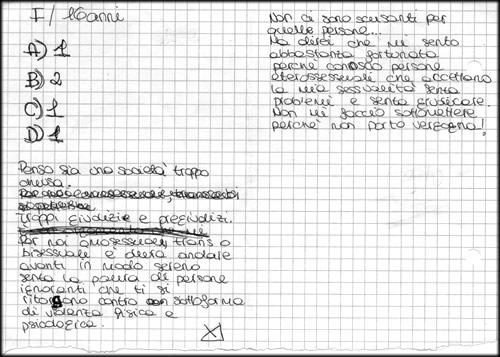 I / 16 anni
A) 1
B) 2
C) 1
D) 1
Penso sia una società troppo
chiusa.
Troppi giudizi e pregiudizi.
Per noi omosessuali, trans o
bisessuali è dura andare
avanti in modo sereno
senza la paura di persone
ignoranti che ti si
ritorgono contro sottoforma
di violenza fisica e
psicologica.
Non ci sono scusanti per
quelle persone...
Ma direi che mi sento
abbastanza fortunata
perchè conosco persone
eterosessuali che accettano
la mia sessualità senza
problemi e senza giudicare.
Non mi faccio sottomettere
perchè non porto vergogna!
X